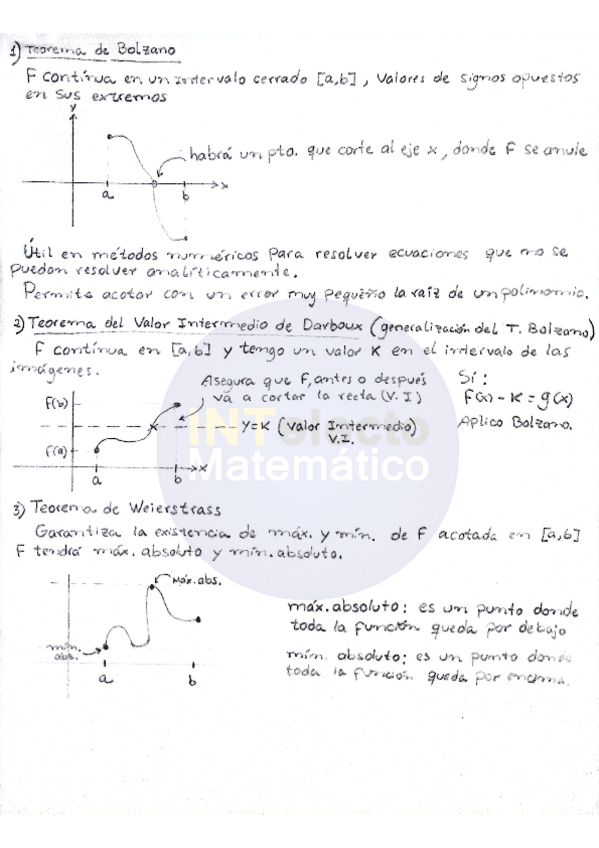 1) Teorema de Bolzano
F contínua en un intervalo cerrado [a,b], valores de signos opuestos
en sus extremos
y
habrá un pto. que corte al eje x, donde F se anule
x
a
b
Útil en métodos numéricos para resolver ecuaciones que no se
puedan resolver analíticamente.
Permite acotar con un error muy pequeño la raíz de un polinomio.
2) Teorema del Valor Intermedio de Darboux (generalización del T. Bolzano)
F contínua en [a,b] y tengo un valor K en el intervalo de las
imágenes.
Asegura que F, antes o después
va a cortar la recta (V.I)
Si:
F(x) - K = g(x)
Aplico Bolzano.
F(b)
Y=K (Valor Intermedio)
V.I.
F(a)
a
b
x
INTelecto
Matemático
3) Teorema de Weierstrass
Garantiza la existencia de máx. y mín. de F acotada en [a,b]
F tendrá máx. absoluto y mín. absoluto.
Máx. abs.
mín.
abs.
a
b
máx. absoluto: es un punto donde
toda la función queda por debajo
mín. absoluto: es un punto donde
toda la función queda por encima.